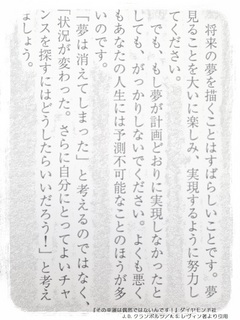 将来の夢を描くことはすばらしいことです。夢
見ることを大いに楽しみ、実現するように努力し
てください。
でも、もし夢が計画どおりに実現しなかったと
しても、がっかりしないでください。よくも悪く
もあなたの人生には予測不可能なことのほうが多
いのです。
「夢は消えてしまった」と考えるのではなく、
「状況が変わった。さらに自分にとってよいチャ
ンスを探すにはどうしたらいいだろう！」と考え
ましょう。
『その幸運は偶然ではないんです！』ダイヤモンド社
J.D.クランボルツ／A.S.レヴィン著より引用